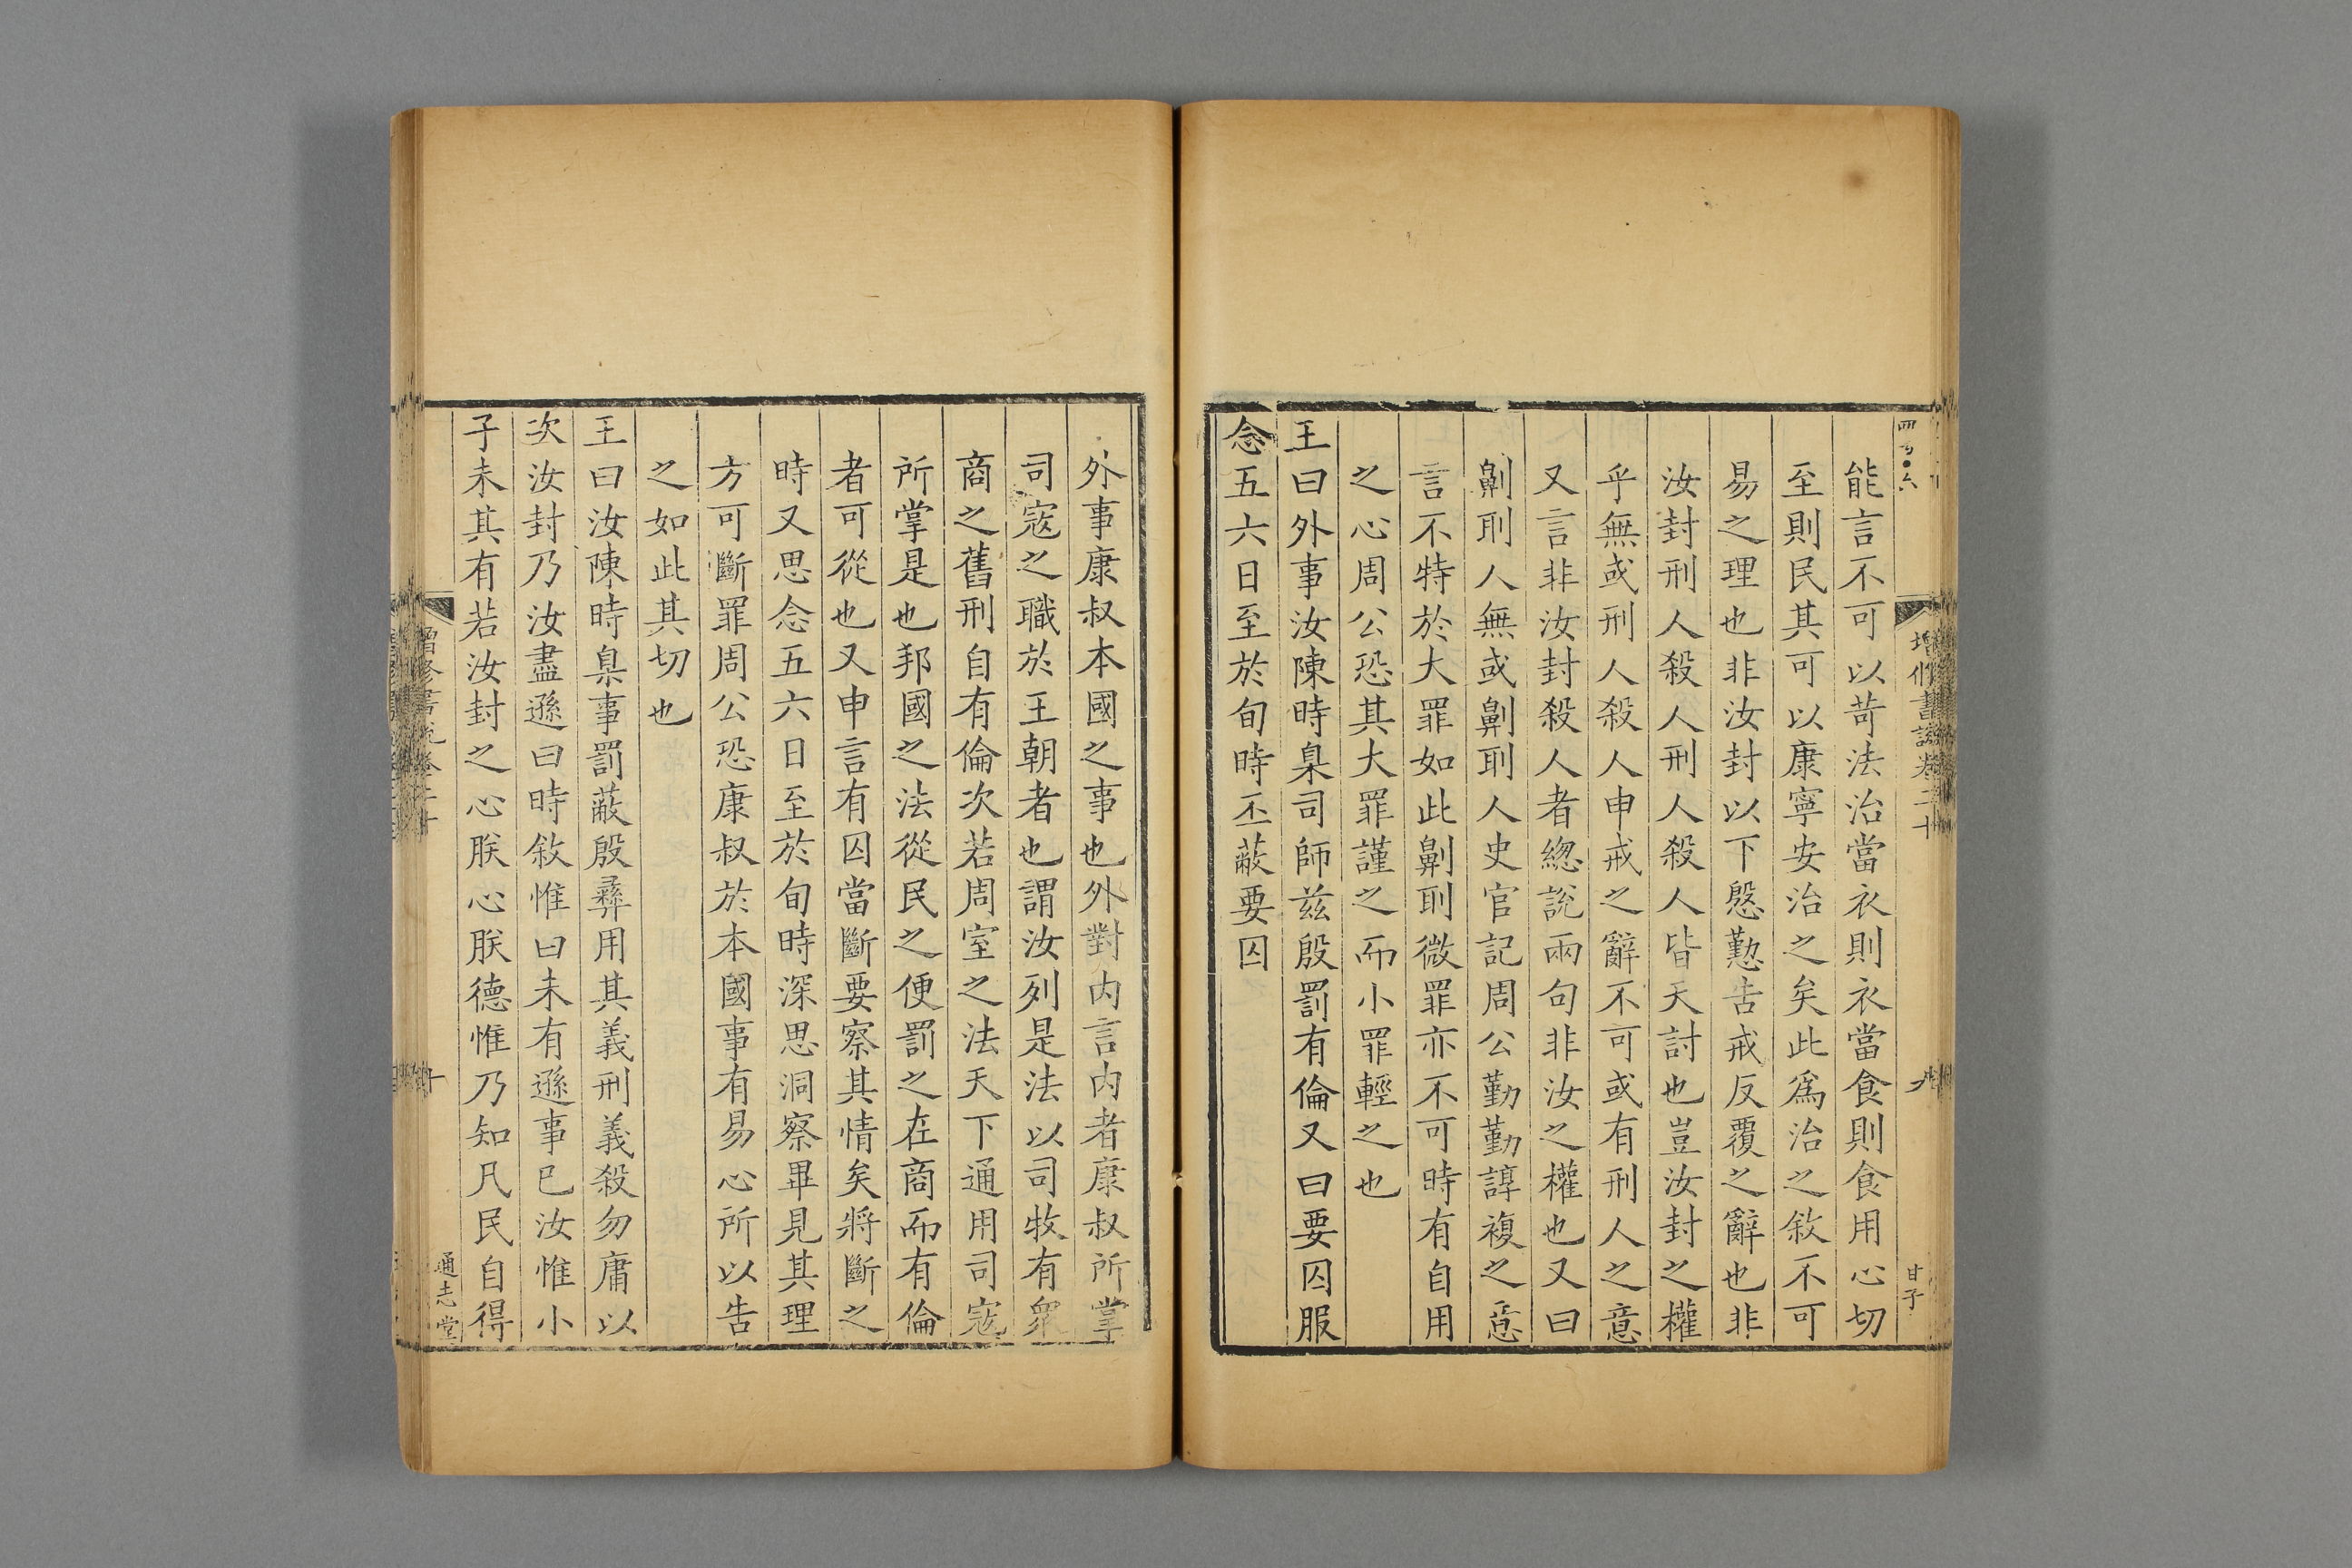 四百●六
增修書說卷二十
九
甘子
能言不可以苛法治當衣則衣當食則食用心切
至則民其可以康寧安治之矣此爲治之敘不可
易之理也非汝封以下慇懃告戒反覆之辭也非
汝封刑人殺人刑人殺人皆天討也豈汝封之權
乎無或刑人殺人申戒之辭不可或有刑人之意
又言非汝封殺人者總說兩句非汝之權也又曰
劓刵人無或劓刵人史官記周公勤勤諄複之意
言不特於大罪如此劓刵微罪亦不可時有自用
之心周公恐其大罪謹之而小罪輕之也
王曰外事汝陳時臬司師兹殷罰有倫又曰要囚服
念五六日至於旬時丕蔽要囚
外事康叔本國之事也外對内言内者康叔所掌
司寇之職於王朝者也謂汝列是法以司牧有衆
商之舊刑自有倫次若周室之法天下通用司寇
所掌是也邦國之法從民之便罰之在商而有倫
者可從也又申言有囚當斷要察其情矣將斷之
時又思念五六日至於旬時深思洞察畢見其理
方可斷罪周公恐康叔於本國事有易心所以告
之如此其切也
王曰汝陳時臬事罰蔽殷彝用其義刑義殺勿庸以
次汝封乃汝盡遜曰時敘惟曰未有遜事已汝惟小
子未其有若汝封之心朕心朕德惟乃知凡民自得
增修書說卷二十
十
通志堂